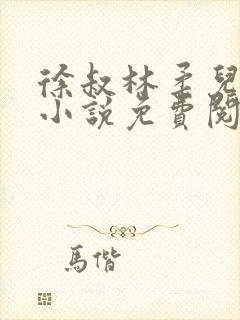 徐叔林柔兒
小說免費閱
馬偕